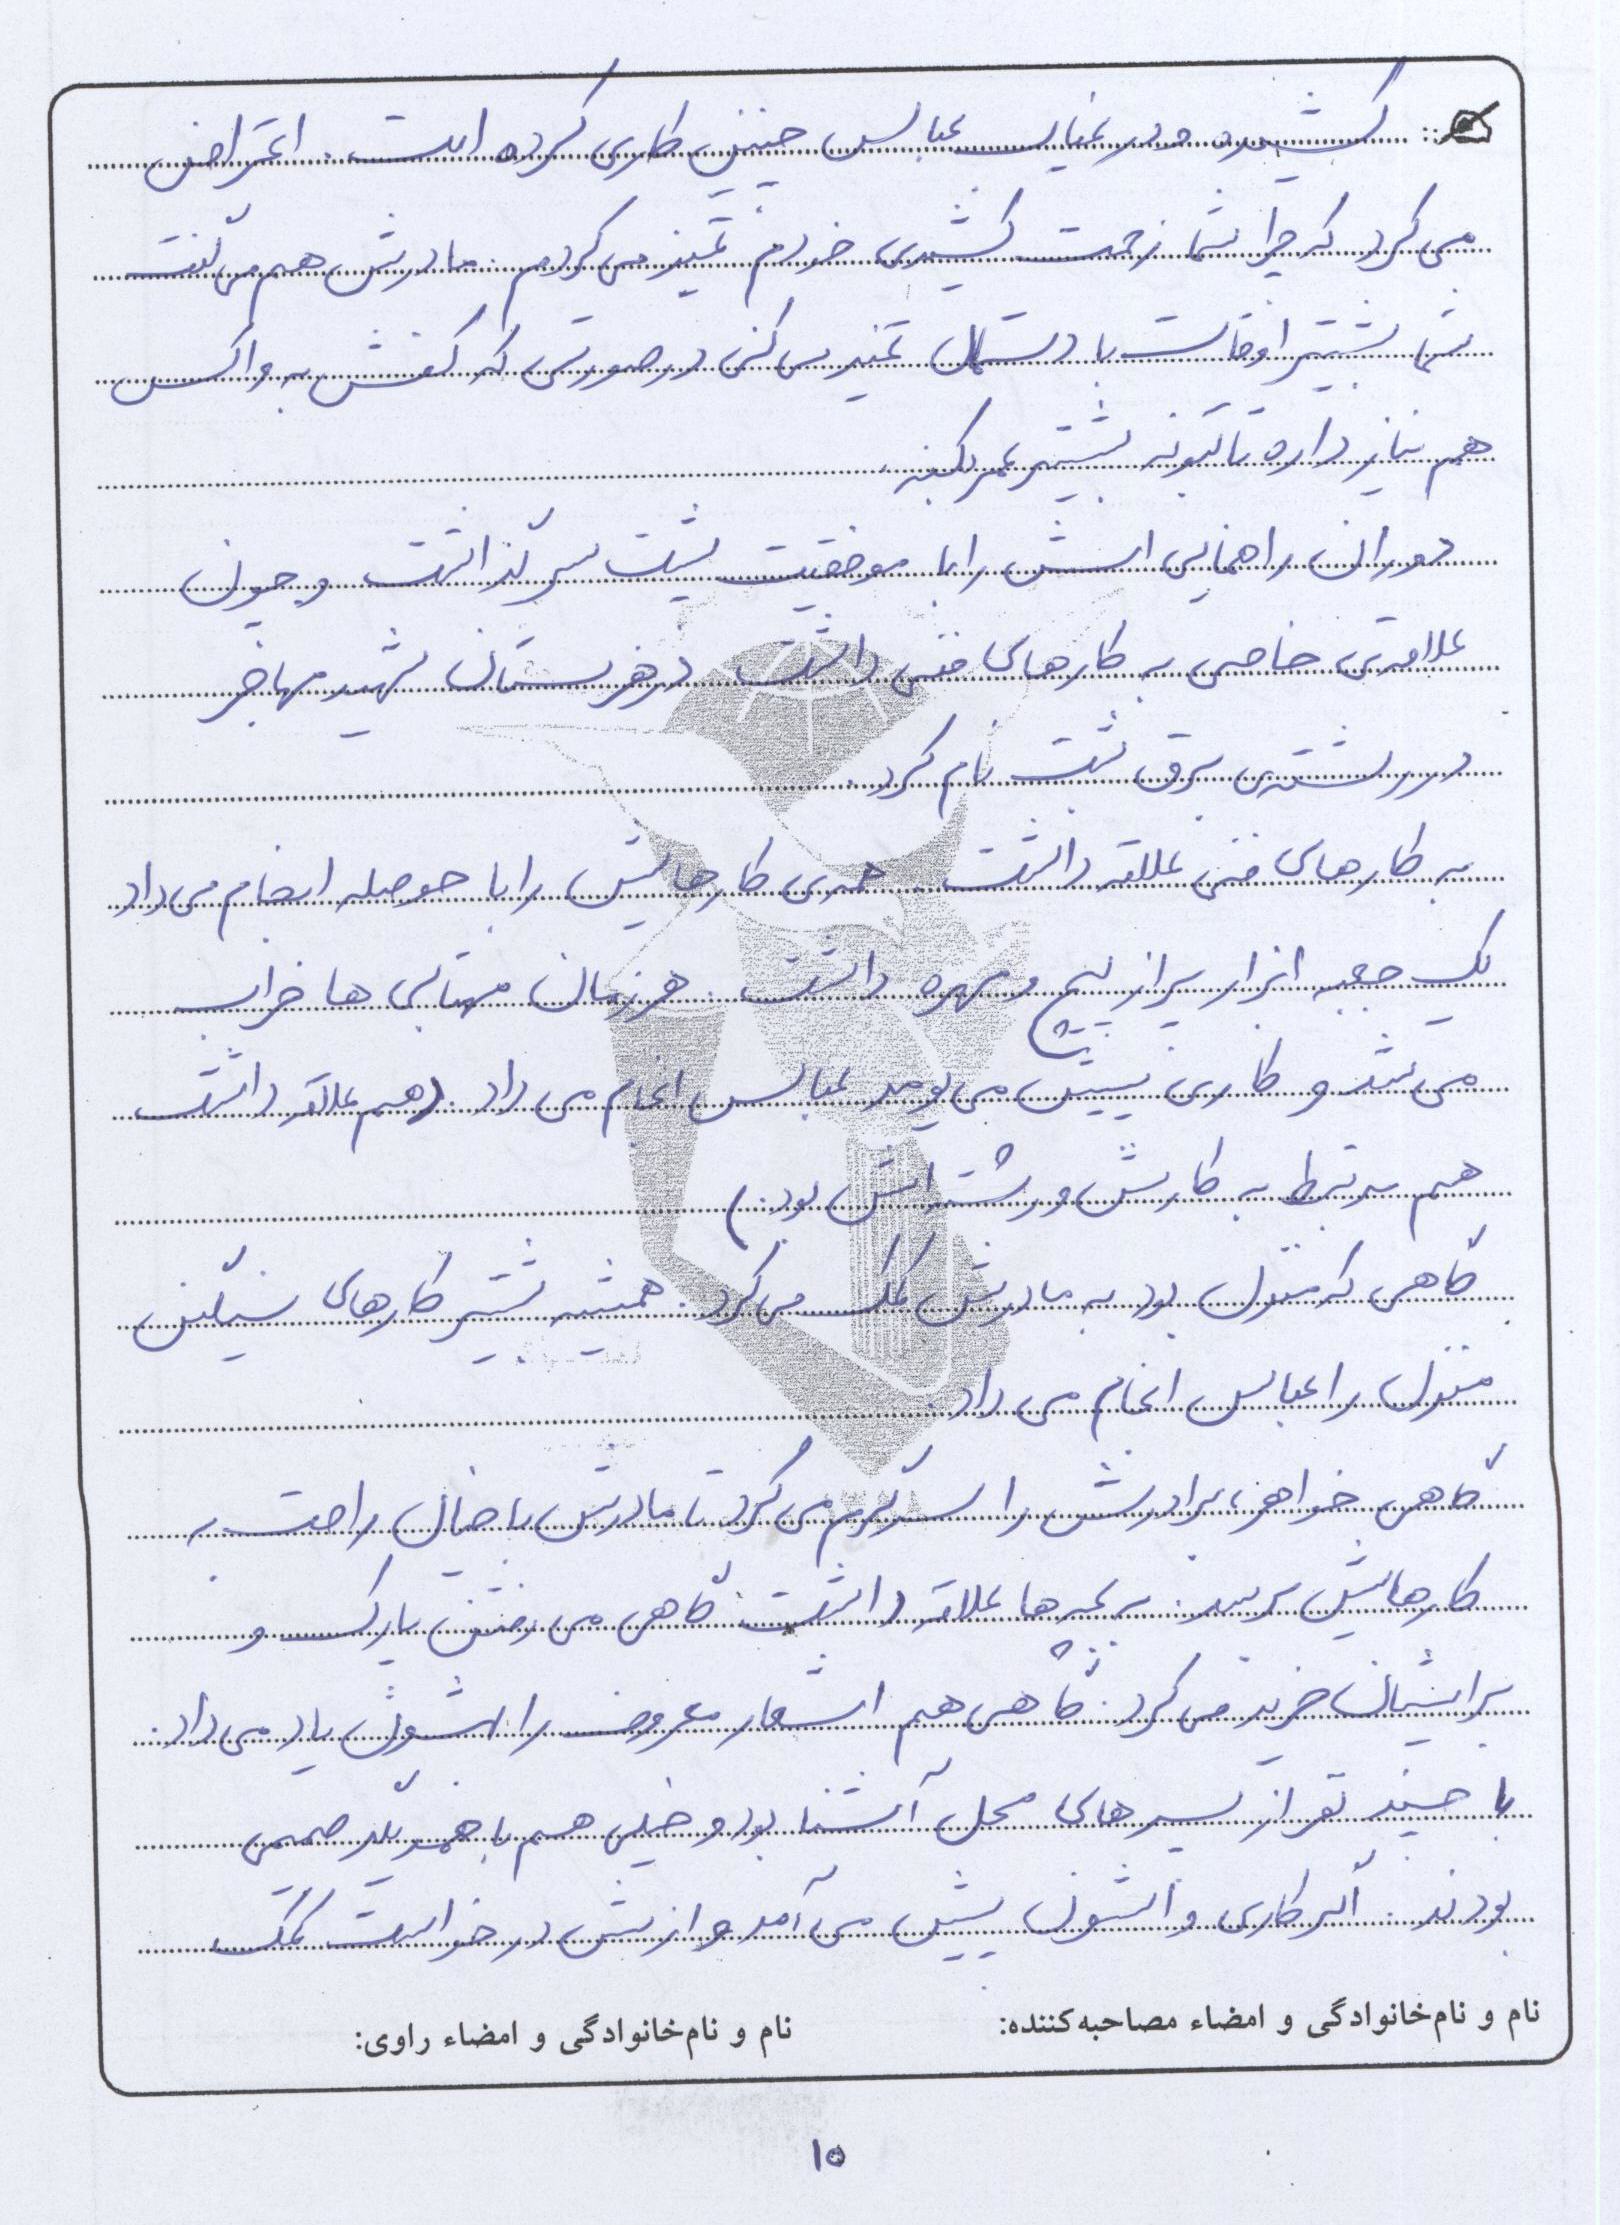 کشیده و در غیاب عباس چنین کاری کرده است. اعتراض
می کرد که چرا شما زحمت کشیدی خودم تمیز می کردم. مادرش هم می گفت
شما بیشتر اوقات با دستمال تمیز می کنی در صورتی که کفش به واکس
هم نیاز داره تا بتونه بیشتر عمر بکنه.
دوران راهنمایی اش را با موفقیت پشت سر گذاشت و چون
علاقه ی خاصی به کارهای فنی داشت در هنرستان شهید مهاجر
در رشته ی برق ثبت نام کرد.
به کارهای فنی علاقه داشت. همه ی کارهایش را با حوصله انجام می داد
یک جعبه ابزار پر از پیچ و مهره داشت. هر زمان مهتابی ها خراب
می شد و کاری پیش می یومد عباس انجام می داد. (هم علاقه داشت
هم مرتبط به کارش و رشته اش بود.)
گاهی که منزل بود به مادرش کمک می کرد. همیشه بیشتر کارهای سنگین
منزل را عباس انجام می داد.
گاهی خواهر، برادرش را سرگرم می کرد تا مادرش با خیال راحت به
کارهایش برسد. به بچه ها علاقه داشت. گاهی می رفتن پارک و
برایشان خرید می کرد. گاهی هم اشعار معروف را بهشون یاد می داد.
با چند نفر از پسرهای محل آشنا بود و خیلی هم با همدیگر صمیمی
بودند. اگر کاری واسشون پیش می آمد و ازش درخواست کمک
نام و نام‌خانوادگی و امضاء مصاحبه‌کننده: نام و نام‌خانوادگی و امضاء راوی:
۱۵